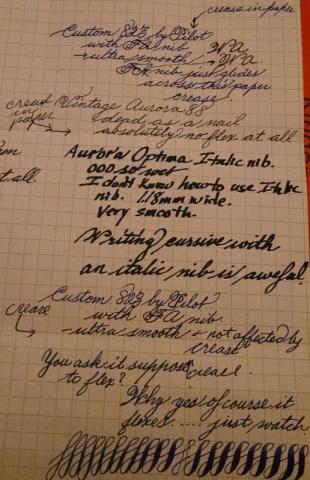 crease in paper
Custom 823 by Pilot
with FA nib
ultra smooth
FA nib just glides
across this paper
crease.
in paper
Vintage Aurora 88
dead as a nail
absolutely no flex at all
t all.
Aurora Optima Italic nib.
OOO so wet
I don't know how to use Italic
nib. 1.18mm wide.
Very smooth.
Writing cursive with
an italic nib is aweful.
Custom 823 by Pilot
with FA nib
crease
ultra smooth & not affected by
crease
crease.
You ask it suppose
to flex?
Why yes of course it
flexes..... just watch.